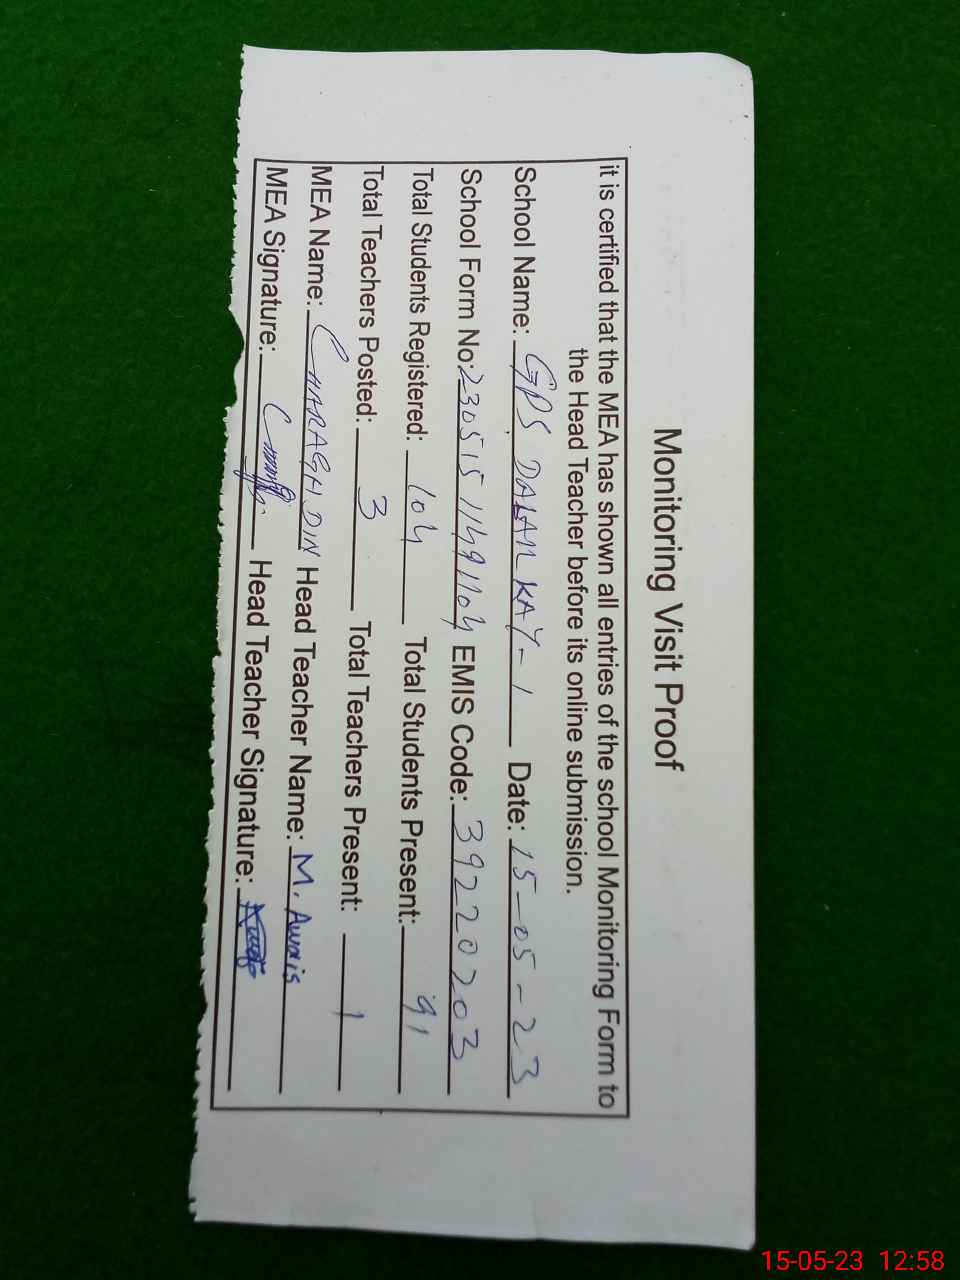 Monitoring Visit Proof
it is certified that the MEA has shown all entries of the school Monitoring Form to
the Head Teacher before its online submission.
School Name: GPS DALAN KAY-1 Date: 15-05-23
School Form No: 230515 11491104 EMIS Code: 39220203
Total Students Registered: 104 Total Students Present: 91
Total Teachers Posted: 3 Total Teachers Present: 1
MEA Name: CHARAGH.DIN Head Teacher Name: M. Awais
MEA Signature: Head Teacher Signature:
15-05-23 12:58